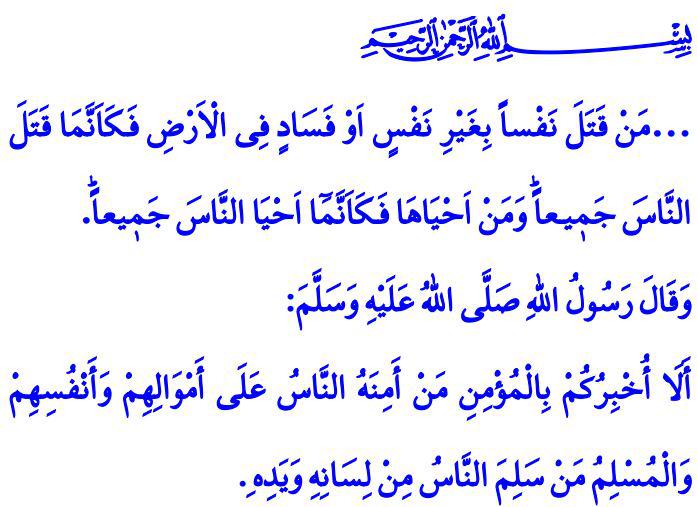 بِسْمِ اللهِ الرَّحْمٰنِ الرَّحِيمِ
...مَنْ قَتَلَ نَفْساً بِغَيْرِ نَفْسٍ اَوْ فَسَادٍ فِى الْاَرْضِ فَكَاَنَّمَا قَتَلَ
النَّاسَ جَمٖيعاًۜ وَمَنْ اَحْيَاهَا فَكَاَنَّمَٓا اَحْيَا النَّاسَ جَمٖيعاًۜ.
وَقَالَ رَسُولُ اللهِ صَلَّى اللهُ عَلَيْهِ وَسَلَّمَ:
أَلَا أُخْبِرُكُمْ بِالْمُؤْمِنِ مَنْ أَمِنَهُ النَّاسُ عَلَى أَمْوَالِهِمْ وَأَنْفُسِهِمْ
وَالْمُسْلِمُ مَنْ سَلِمَ النَّاسُ مِنْ لِسَانِهِ وَيَدِهِ.